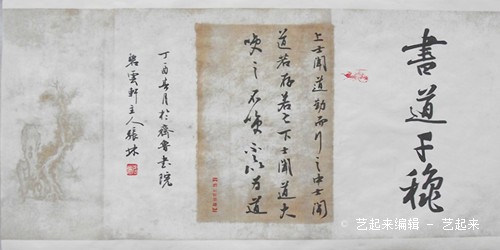 書道千穐
上士聞道勤而行之中士聞
道若存若亡下士聞道大
咲之不咲不足以为道
丁酉春月於齊魯書院
碧雲軒主人張
© 艺起来编辑 - 艺起来